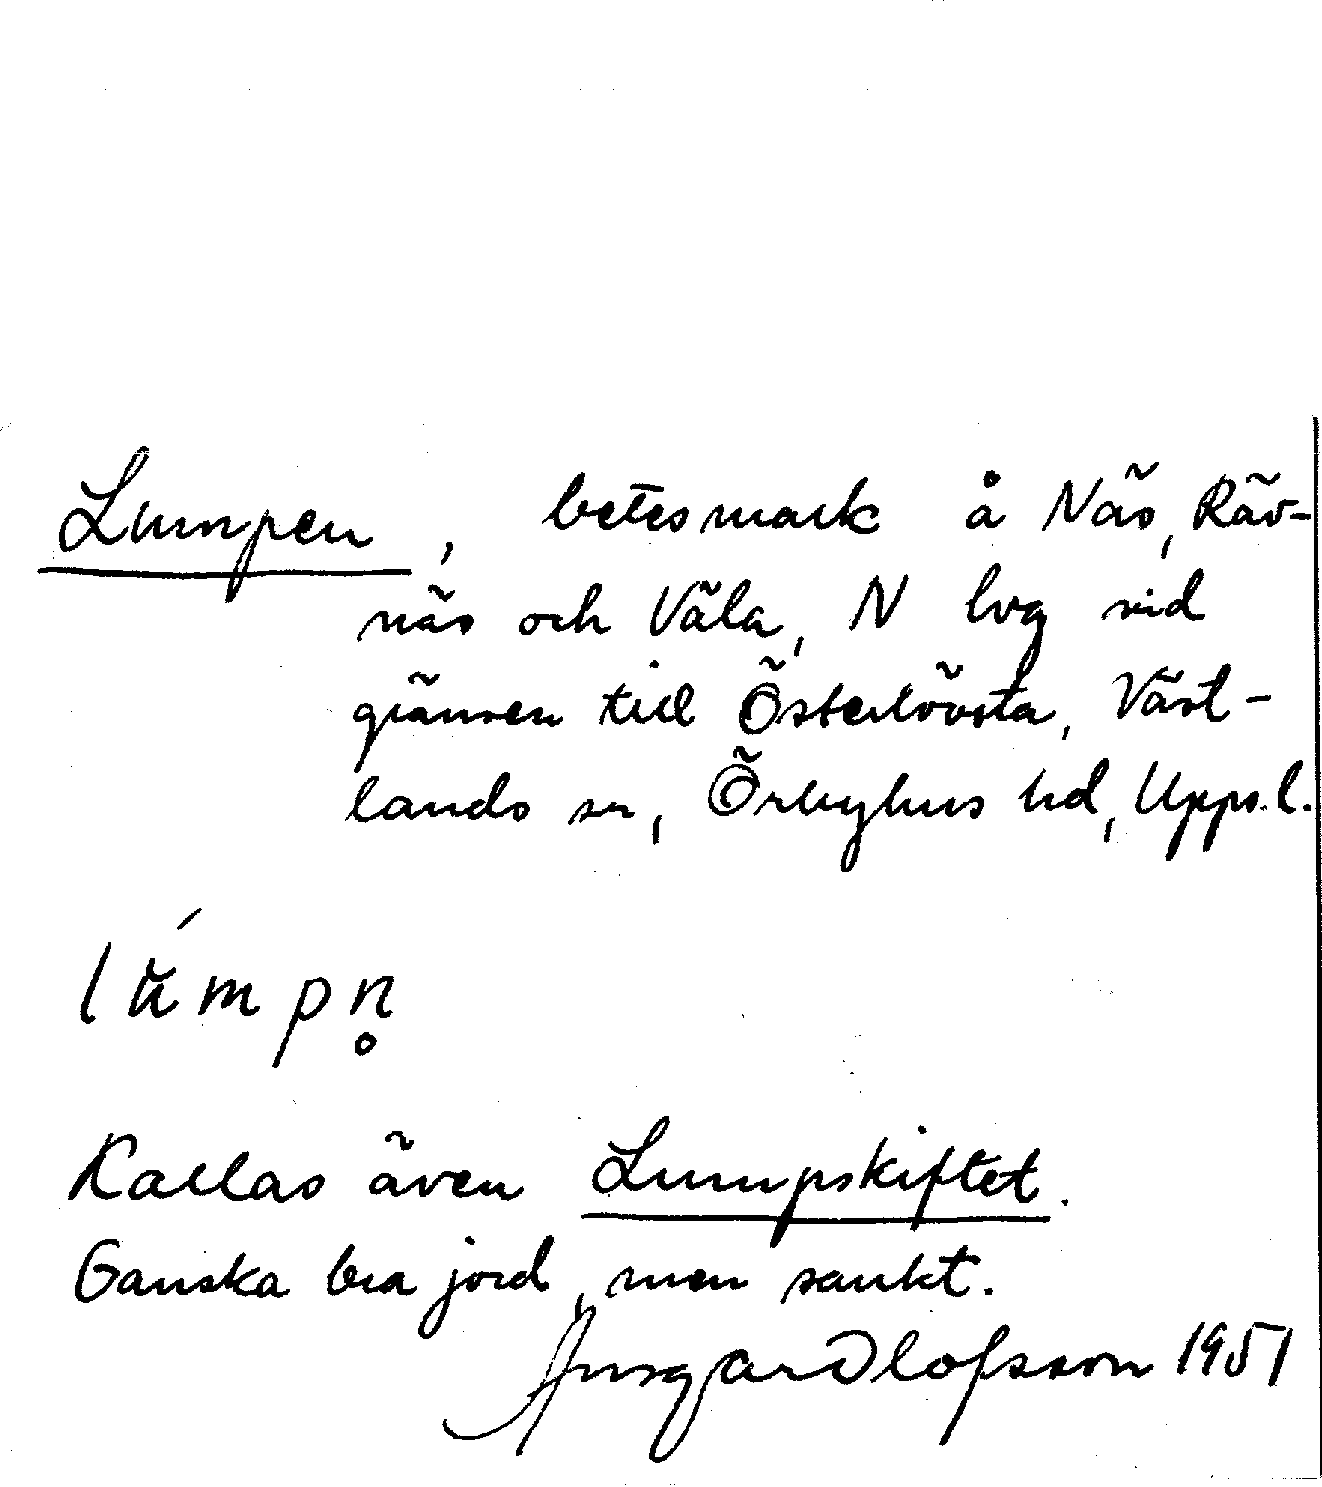 Lumpen, betesmark å Näs, Räv-
näs och Väla, N lvg vid
gränsen till Österlövsta, Väst-
lands sn, Örbyhus hd, Upps. l.
lúmpn̥
Kallas även Lumpskiftet.
Ganska bra jord, men sankt.
Ansgar Olofsson 1951